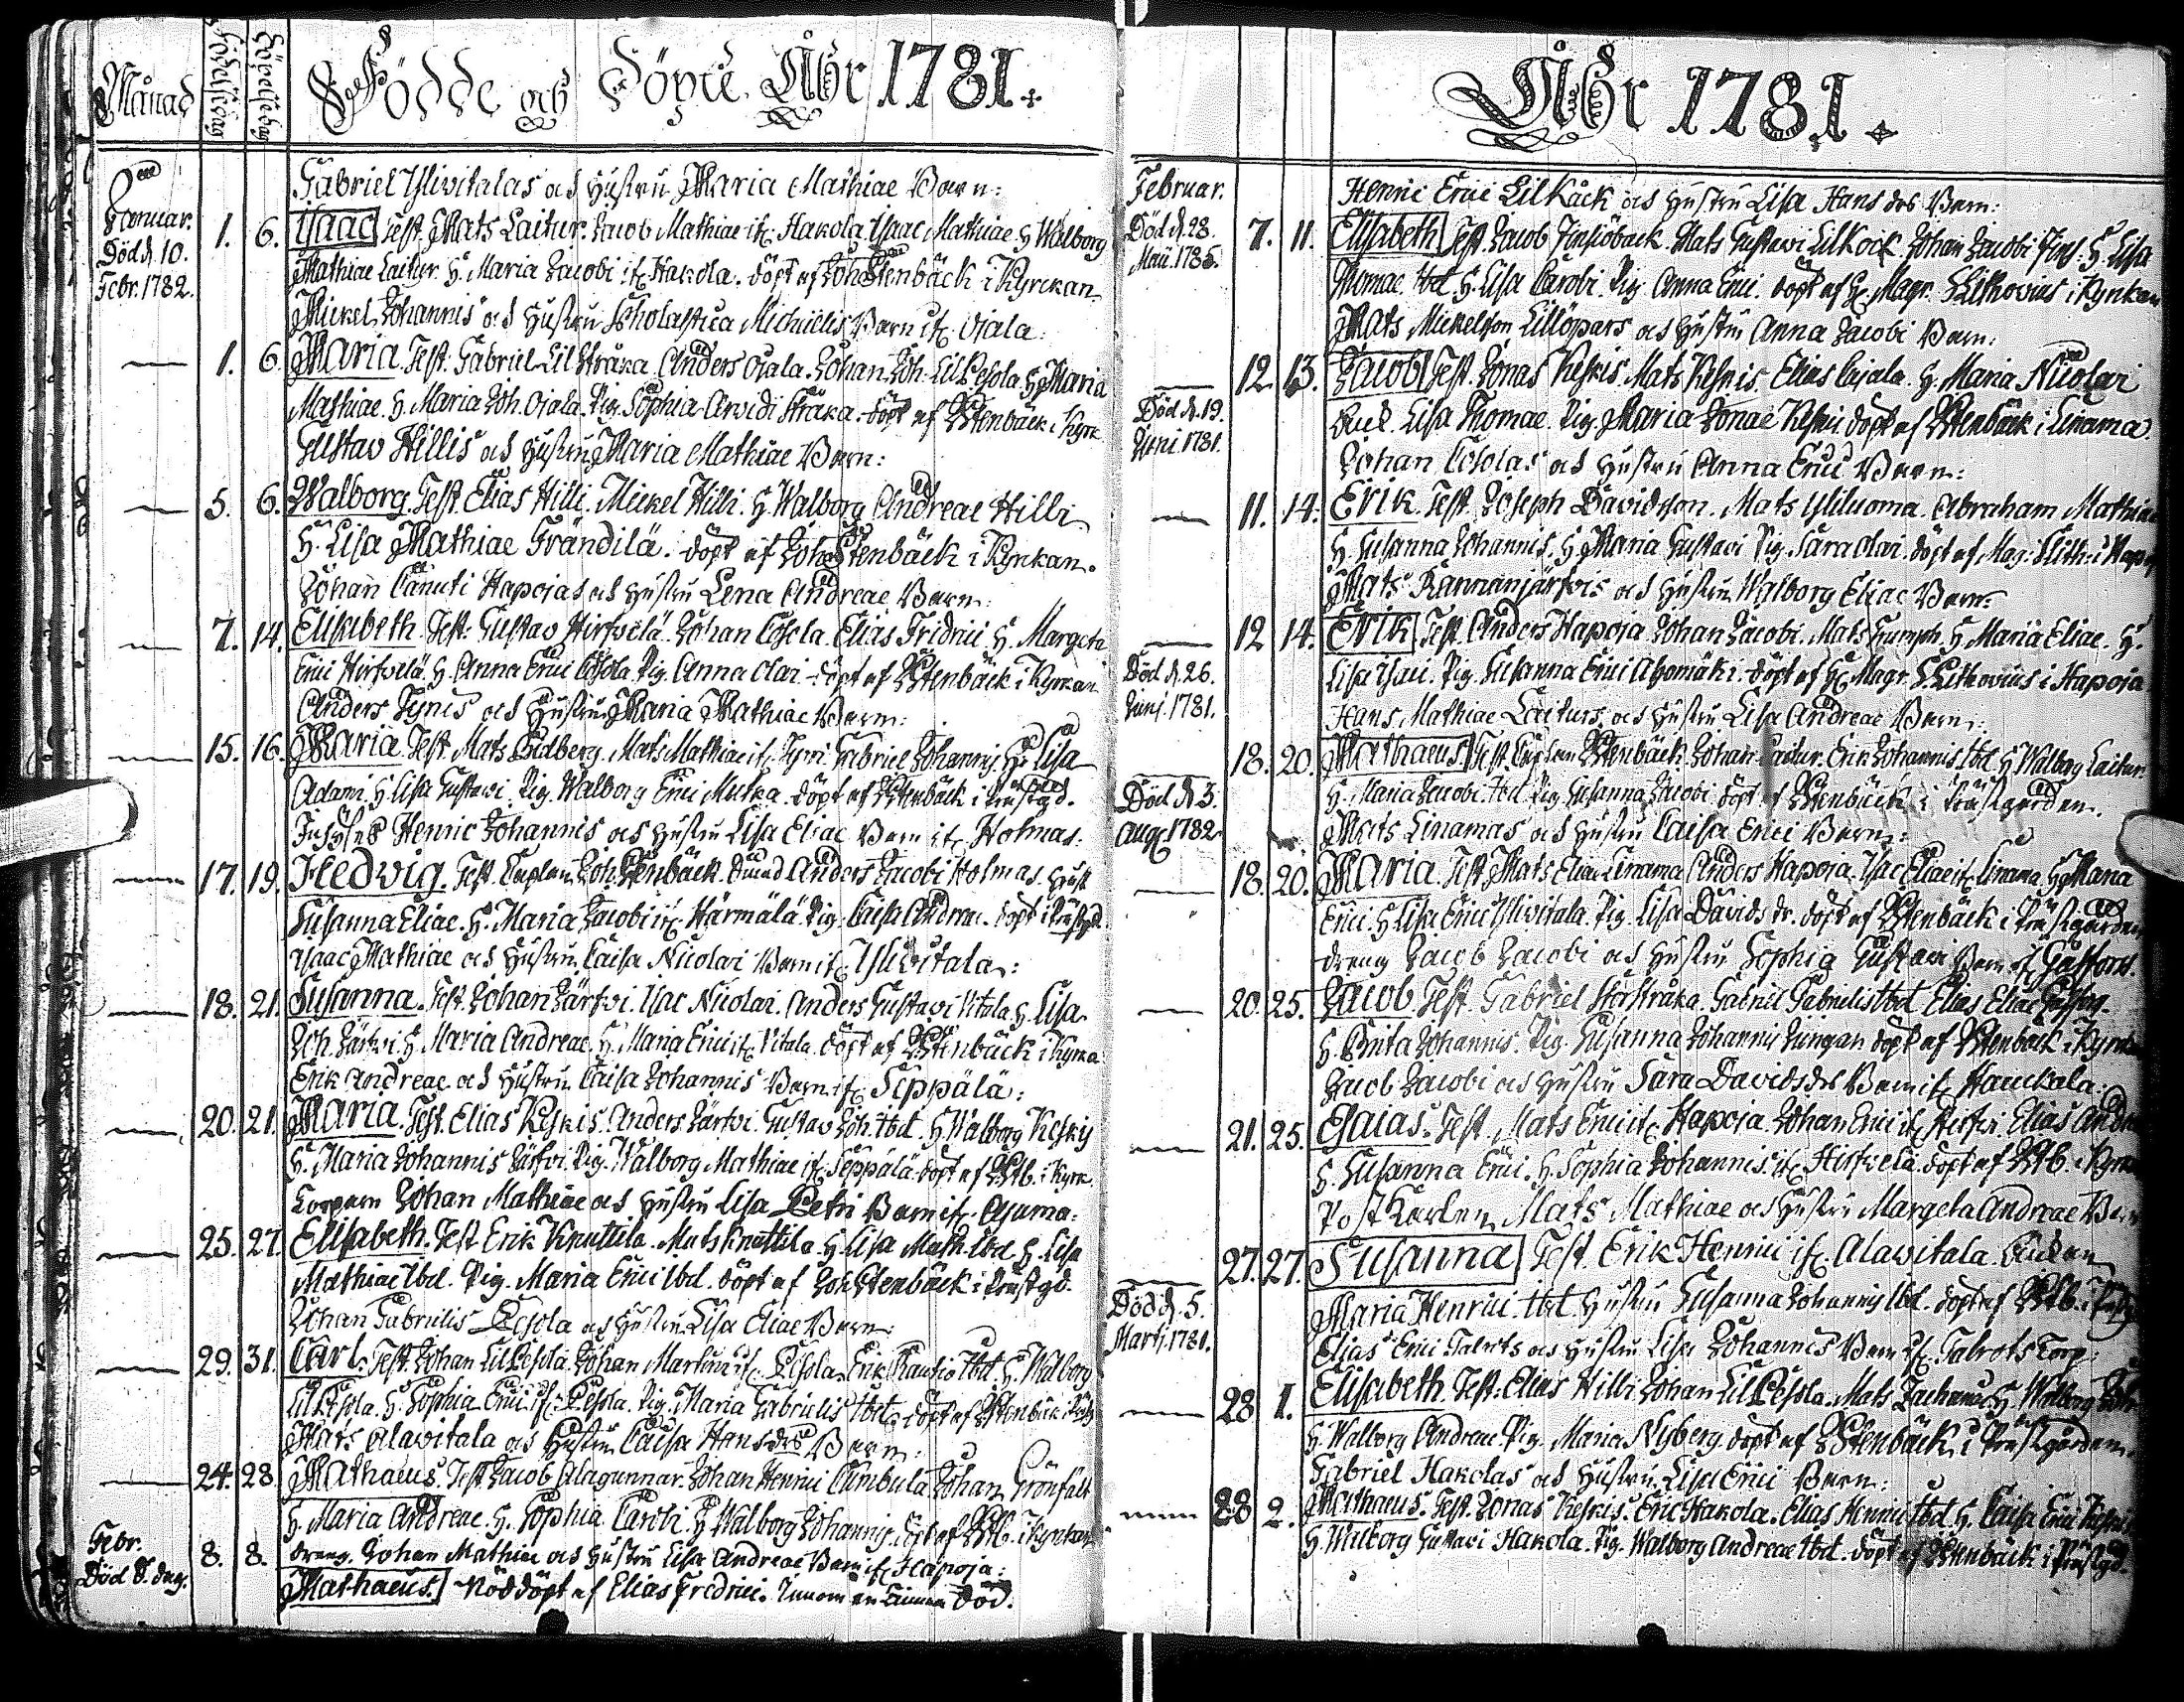 Månad Födelsedag Döpelsedag Födde och Döpte Åhr 1781.
Gabriel Yliwitalas och Hustru Maria Mathiae Barn:
Januar. 1. 6. Isaac Test. Mats Laitur. Jacob Mathiae it: Hakola. Isaac Mathiae. H Walborg
Död d. 10. Mathiae Laitur. H. Maria Jacobi it: Hakola. döpt af Joh Stenbäck i Kyrckan.
Febr. 1782.
Mickel Johannis och Hustru Scholastica Michielis Barn it: Ojala:
1. 6. Maria. Test: Gabriel Lil Stråka. Anders Ojala. Johan Joh. Lil Pesola. H Maria
Mathiae. H. Maria Joh. Ojala. Pig. Sophia Arvidi Stråka. döpt af JStenbäck i Kyrk.
Gustav Hillis och Hustru Maria Mathiae Barn:
5. 6. Walborg. Test. Elias Hilli. Mickel Hilli. H Walborg Andreae Hilli
H. Lisa Mathiae Frändilä. döpt af Joh Stenbäck i Kyrkan.
Johan Canuti Hapojas och Hustru Lena Andreae Barn:
7. 14. Elisabeth. Test: Gustav Hirfvelä. Johan Pesola. Elias Fridrici. H. Margeta
Erici Hirfvelä. H. Anna Erici Pesola. Pig. Anna Olai. döpt af JStenbäck i Kyrkan
Anders Tynis och Hustru Maria Mathiae Barn:
15. 16. Maria. Test. Mats Lidberg. Mats Mathiae it. Tyni. Gabriel Johannis. H. Lisa
Adami. H. Lisa Gustavi. Pig. Walborg Erici Mutka. döpt af JStenbäck i Prästgd.
Inhyses Henric Johannis och Hustru Lisa Eliae Barn it: Holmas:
17. 19. Hedvig. Test. Caplan Joh. Stenbäck. Anders Jacobi Holmas. Hust
Susanna Eliae. H. Maria Jacobi it: Härmälä. Pig. Caisa Andreae. döpt i Prästgd.
Isaac Mathiae och Hustru Caisa Nicolai Barn it: Yliwitala:
18. 21. Susanna. Test. Johan Järfvi. Isac Nicolai. Anders Gustavi Vitala. H. Lisa
Joh. Järfvi. H Maria Andreae. H. Maria Erici it: Vitala. döpt af JStenbäck i Kyrka
Erik Andreae och Hustru Caisa Johannis Barn it: Seppälä:
20. 21. Maria. Test. Elias Keskis. Anders Järfvi. Gustav Joh. Ibd. H. Walborg Keskis
H. Maria Johannis Järfvi. Pig. Walborg Mathiae it: Seppälä. döpt af JStb. i Kyrk.
Johan Mathiae och Hustru Lisa Petri Barn it: Ayuma:
25. 27. Elisabeth. Test Erik Knuttila. Mats Knuttila. H Lisa Math. Ibd. H. Lisa
Mathiae Ibd. Pig. Maria Erici Ibd. döpt af Joh Stenbäck i Prästgd.
Johan Gabrielis Pesola och Hustru Lisa Eliae Barn:
29. 31. Carl. Test. Johan Lil Pesola. Johan Martini it: Pesola. Erik Rautio Ibd. H. Walborg
Lil Pesola. H. Sophia Erici it: Pesola. Pig. Maria Gabrielis Ibd. döpt af JStenbäck i
Mats Alawitala och Hustru Caisa Hans dr Barn:
24. 28 Mathaeus. Test. Jacob Alagunnar. Johan Henrici Cambula. Johan Grönfält
H. Maria Andreae. H. Sophia Caroli. H Walborg Johannis. döpt af JStb. i Kyrkan
Febr. 8. 8. Dräng. Johan Mathiae och Hustru Lisa Andreae Barn it: Hapoja:
Död S. dag. Mathaeus. Nöddöpt af Elias Fredrici. Innom en Timma Död.
Åhr 1781.
Februar. Henric Erici Lil Kåck och Hustru Lisa Hans dr Barn:
Död d. 28. 7. 11. Elisabeth Test. Jacob Finsiöback. Mats Gustavi LilKock. Johan Jacobi Fins. H. Lisa
Maii. 1785. Thomae. Ibd. H. Lisa Caroli. Pig. Anna Erici. döpt af H. Magr. SLithovius i Kyrkan
Mats Mickelson Lillöpars och Hustru Anna Jacobi Barn:
12. 13. Jacob Test. Jonas Keskis. Mats Keskis. Elias Ojala. H. Maria Nicolai
Död d. 19. Lisa Thomae. Pig. Maria Jonae Keski döpt af JStenbäck i Linama.
Juni. 1781.
Johan Pesolas och Hustru Anna Erici Barn:
11. 14. Erik. Test. Joseph Davidsson. Mats Yliluoma. Abraham Mathiae
H. Susanna Johannis. H. Maria Gustavi. Pig. Sara Olai. döpt af Mag: SLith: i Hapoj
Mats Kannanjärfvis och Hustru Walborg Eliae Barn:
12 14. Erik Test. Anders Hapoja. Johan Jacobi. Mats Trumph. H. Maria Eliae. H.
Död d. 26. Lisa Isaci. Pig. Susanna Erici Alyomäki. döpt af H: Magr. S.Lithovius i Hapoja
Junj. 1781.
Hans Mathiae Laiturs och Hustru Lisa Andreae Barn:
18. 20. Mathaeus Test. Caplan JStenbäck. Johan Laitur. Erik Johannis Ibd. H Walborg Laitur.
Död d. 3. H. Maria Jacobi. Ibd. Pig. Susanna Jacobi döpt af JStenbäck i Prästgården.
Aug. 1782. Mats Linamas och Hustru Caisa Erici Barn:
18. 20. Maria. Test. Mats Eliae Linama. Anders Hapoja. Isac Eliae it: Linama. H. Maria
Erici. H Lisa Erici Yliwitala. Pig. Lisa Davids dr. döpt af JStenbäck i Prästgården
Dräng Jacob Jacobi och Hustru Sophia Gustavi Barn it:
20. 25. Jacob. Test. Gabriel Storstråka. Gabriel Gabrielis Ibd. Elias Eliae
H. Brita Johannis. Pig. Susanna Johannis Jungan döpt af JStenbäck i Kyrkan
Jacob Jacobi och Hustru Sara Davids dr Barn it: Hauckala:
21. 25. Esaias. Test. Mats Erici it: Hapoja. Johan Erici it: Elias
H. Susanna Erici. H. Sophia Johannis. it: Hirfvelä. döpt af JStb. i Kyrk
Post Karlen Mats Mathiae och Hustru Margeta Andreae Barn
27. 27. Susanna Test. Erik Henrici it: Alawitala. Änkan
Död d. 5. Maria Henrici Ibd. Hustru Susanna Johannis Ibd. döpt af JStb. i
Martj. 1781.
Elias Erici Talrots och Hustru Lisa Johannis Barn it: Talrots Torp:
28 1. Elisabeth. Test. Elias Hilli. Johan Lil Pesola. Mats Zachariae. H. Walborg
H. Walborg Andreae. Pig. Maria Nyberg. döpt af JStenbäck i Prästgården.
Gabriel Hakolas och Hustru Lisa Erici Barn:
28 2. Mathaeus. Test. Jonas Keskis. Eric Hakola. Elias Henrici Ibd. H. Caisa Erici Keskis
H. Walborg Gustavi Hakola. Pig. Walborg Andreae Ibd. döpt af JStenbäck i Prästgd.